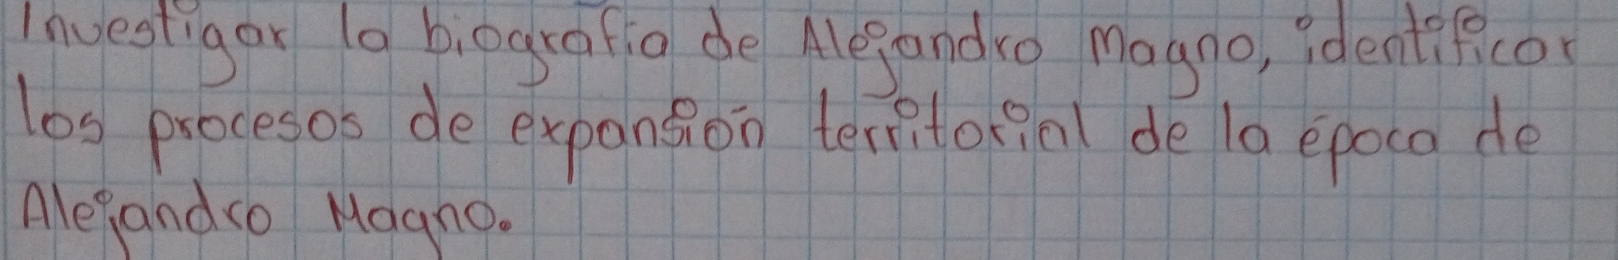 Investigar la biografia de Alejandro Magno, identificar
los procesos de expansión territorial de la época de
Alejandro Magno.